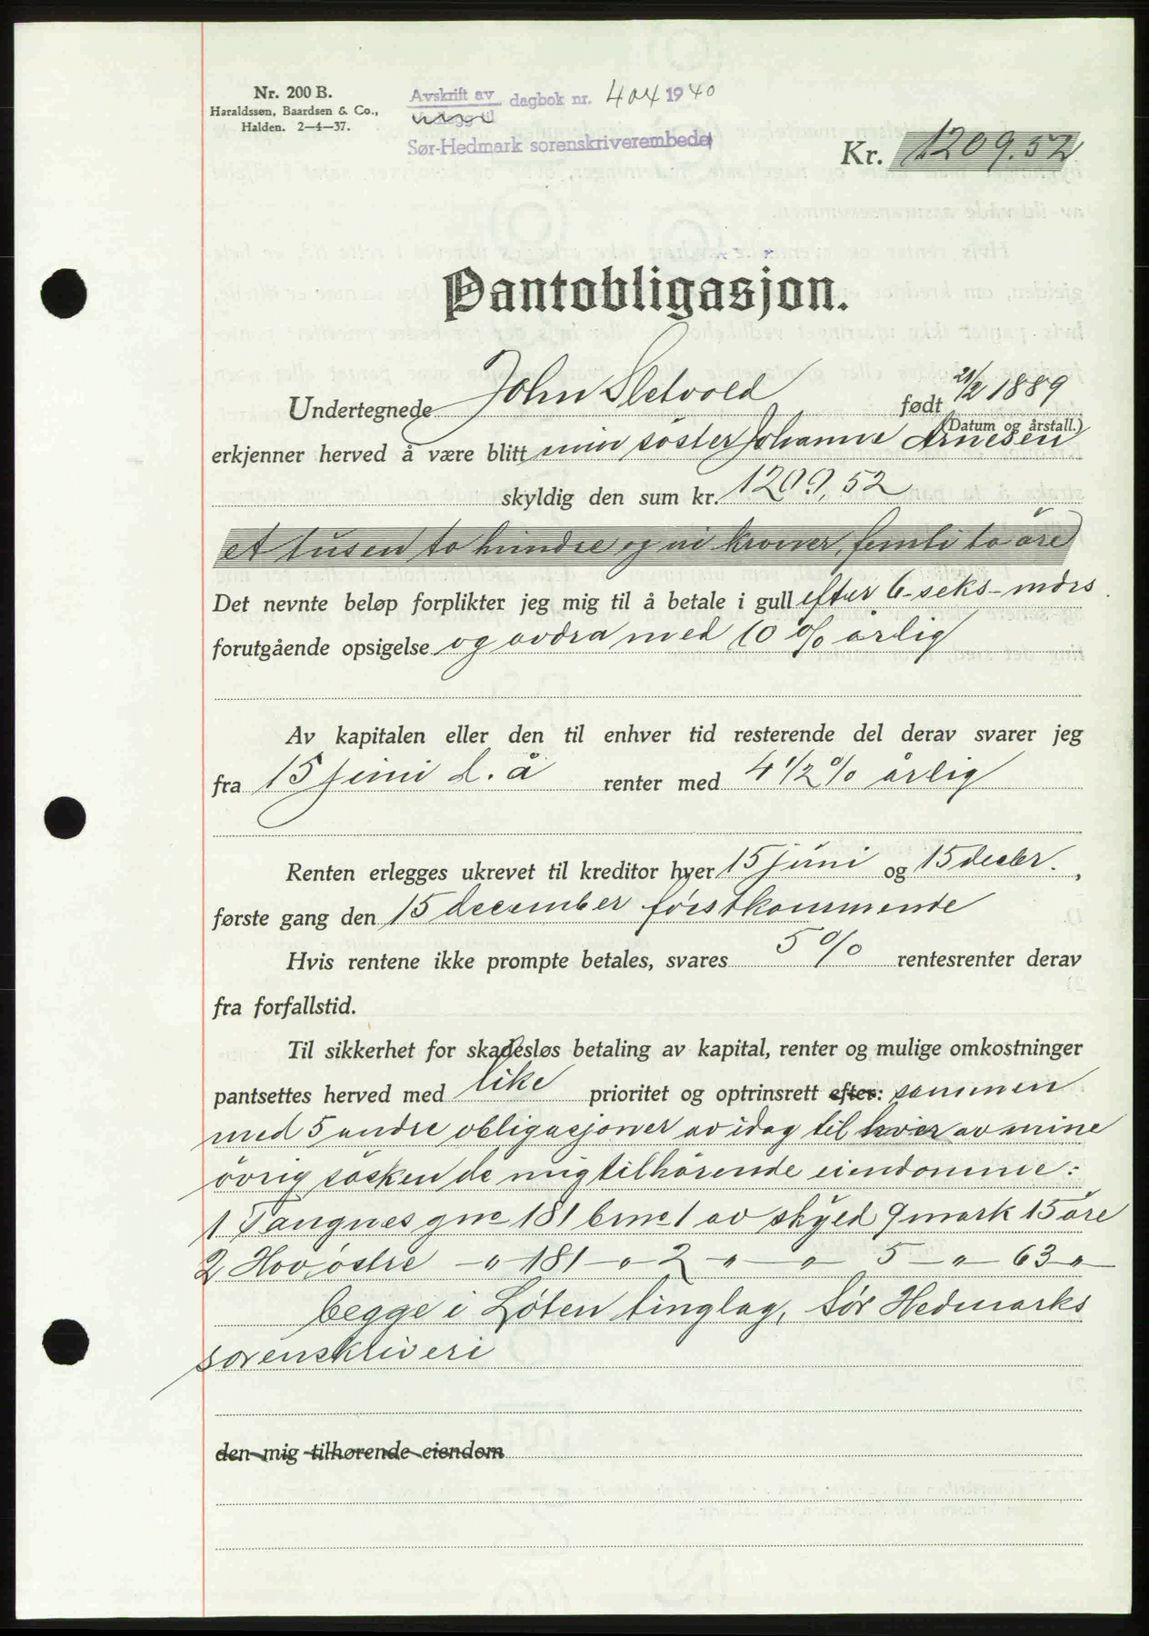 Nr. 200 B.
Haraldssøn, Baardsen & Co.,
Halden. 2—4—37.
Avskrift av dagbok nr. 404 1940
Sør-Hedmark sorenskriverembedet
Kr. 1209.52
Pantobligasjon.
Undertegnede John Sletvold født 21/2 1889
(Datum og årstall.)
erkjenner herved å være blitt min søster Johanne Arnesen
skyldig den sum kr. 1209,52
et tusen to hundre og ni kroner, femti to øre
Det nevnte beløp forplikter jeg mig til å betale i gull efter 6-seks-mdrs
forutgående opsigelse og avdra med 10 % årlig
Av kapitalen eller den til enhver tid resterende del derav svarer jeg
fra 15 juni d. å renter med 4 1/2 % årlig
Renten erlegges ukrevet til kreditor hver 15 juni og 15 decbr.,
første gang den 15 december førstkommende
Hvis rentene ikke prompte betales, svares 5 % rentesrenter derav
fra forfallstid.
Til sikkerhet for skadesløs betaling av kapital, renter og mulige omkostninger
pantsettes herved med like prioritet og optrinsrett efter: sammen
med 5 andre obligasjoner av idag til hver av mine
øvrig søsken de mig tilhørende eiendomme:
1 Tangnes gne 181 bne 1 av skyld 9 mark 15 øre
2 Hov østre —„— 181 —„— 2 „ —„— 5 —„— 63 „—
begge i Løten tinglag, Sør Hedmarks
sorenskriveri
den mig tilhørende eiendom